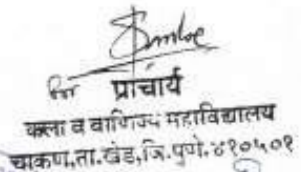 for प्राचार्य
कला व वाणिज्य महाविद्यालय
चाकण,ता.खेड,जि.पुणे.४१०५०१